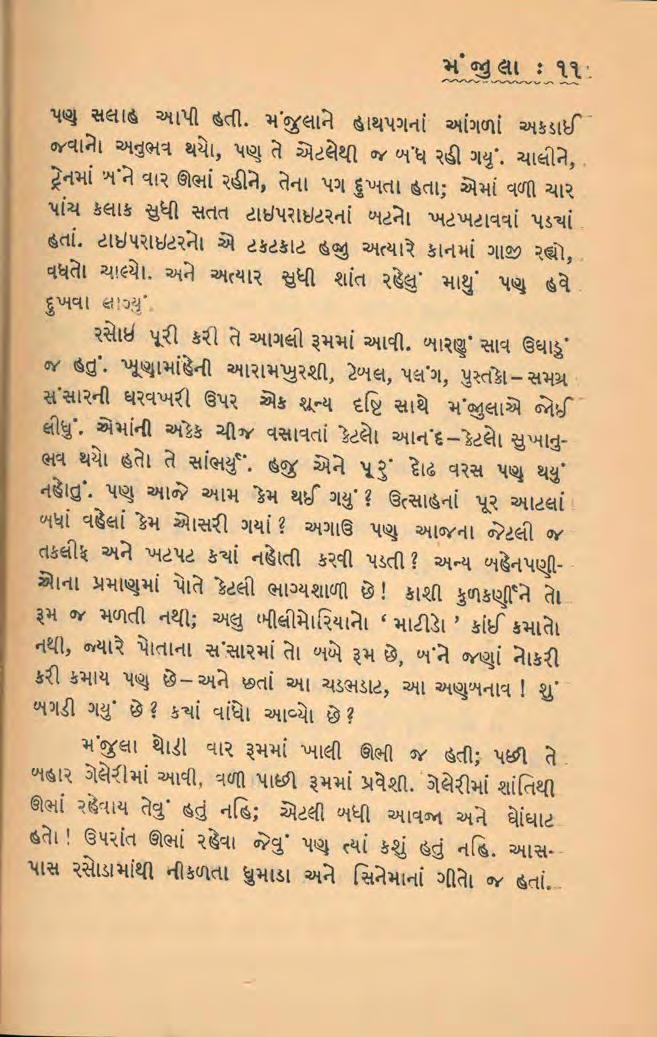 મંજુલા : ૧૧
પણ સલાહ આપી હતી. મંજુલાને હાથપગનાં આંગળાં અકડાઈ
જવાનો અનુભવ થયો, પણ તે એટલેથી જ બંધ રહી ગયું. ચાલીને,
ટ્રેનમાં બંને વાર ઊભાં રહીને, તેના પગ દુખતા હતા; એમાં વળી ચાર
પાંચ કલાક સુધી સતત ટાઇપરાઇટરનાં બટનો ખટખટાવવાં પડ્યાં
હતાં. ટાઇપરાઇટરનો એ ટકટકાટ હજી અત્યારે કાનમાં ગાજી રહ્યો,
વધતો ચાલ્યો. અને અત્યાર સુધી શાંત રહેલું માથું પણ હવે
દુખવા લાગ્યું.
રસોઇ પૂરી કરી તે આગલી રૂમમાં આવી. બારણું સાવ ઉઘાડું
જ હતું. ખૂણામાંહેની આરામખુરશી, ટેબલ, પલંગ, પુસ્તકો – સમગ્ર
સંસારની ઘરવખરી ઉપર એક શૂન્ય દૃષ્ટિ સાથે મંજુલાએ જોઈ
લીધું. એમાંની અકેક ચીજ વસાવતાં કેટલો આનંદ–કેટલો સુખાનુ-
ભવ થયો હતો તે સાંભર્યું. હજુ એને પૂરું દોઢ વરસ પણ થયું
નહોતું. પણ આજે આમ કેમ થઈ ગયું ? ઉત્સાહનાં પૂર આટલાં
બધાં વહેલાં કેમ ઓસરી ગયાં ? અગાઉ પણ આજના જેટલી જ
તકલીફ અને ખટપટ ક્યાં નહોતી કરવી પડતી ? અન્ય બહેનપણી-
ઓના પ્રમાણમાં પોતે કેટલી ભાગ્યશાળી છે ! કાશી કુળકર્ણીને તો
રૂમ જ મળતી નથી; અલુ બીલીમોરિયાનો ‘ માટીડો ’ કાંઈ કમાતો
નથી, જ્યારે પોતાના સંસારમાં તો બબે રૂમ છે, બંને જણાં નોકરી
કરી કમાય પણ છે– અને છતાં આ ચડભડાટ, આ અણબનાવ ! શું
બગડી ગયું છે ? ક્યાં વાંધો આવ્યો છે ?
મંજુલા થોડી વાર રૂમમાં ખાલી ઊભી જ હતી; પછી તે
બહાર ગેલેરીમાં આવી, વળી પાછી રૂમમાં પ્રવેશી. ગેલેરીમાં શાંતિથી
ઊભાં રહેવાય તેવું હતું નહિ; એટલી બધી આવજા અને ઘોંઘાટ
હતો ! ઉપરાંત ઊભાં રહેવા જેવું પણ ત્યાં કશું હતું નહિ. આસ-
પાસ રસોડામાંથી નીકળતા ધુમાડા અને સિનેમાનાં ગીતો જ હતાં.